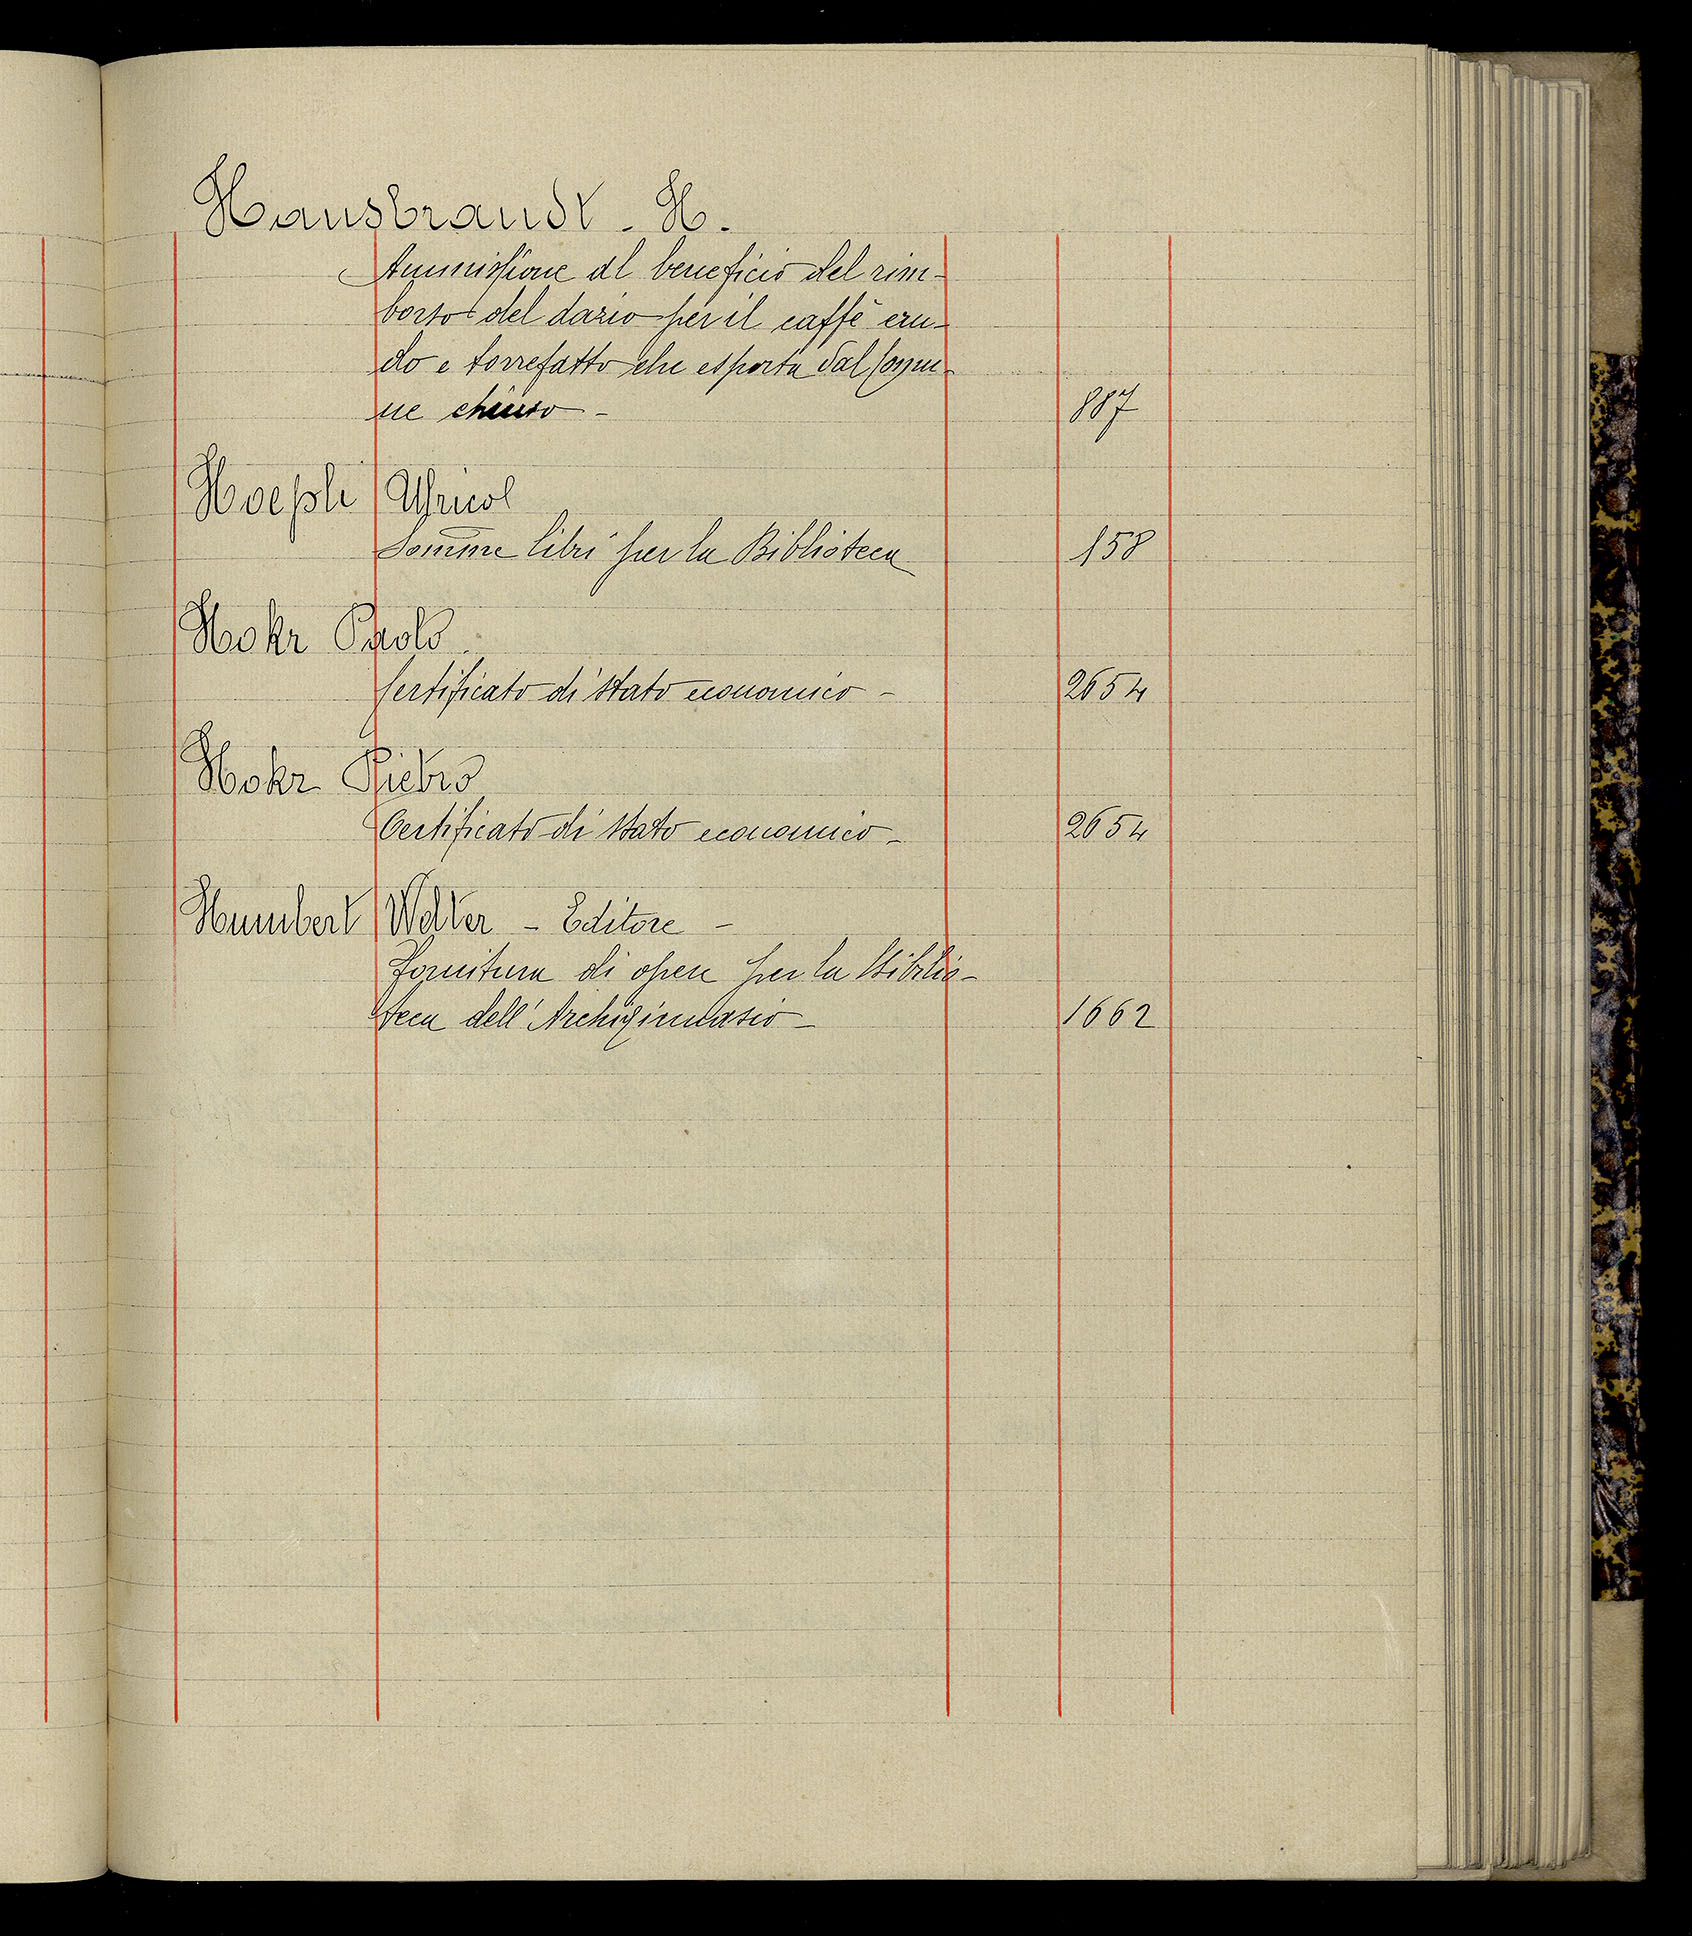 Hausbrandt - H.
Ammissione al beneficio del rim-
borso del dazio per il caffè cru-
do e torrefatto che esporta dal Comu-
ne chiuso - 887
Hoepli Ulrico
Somme libri per la Biblioteca 158
Hokr Paolo.
Certificato di stato economico - 2654
Hokr Pietro
Certificato di stato economico - 2654
Humbert Welter - Editore -
fornitura di opere per la Biblio-
teca dell'Archiginnasio - 1662